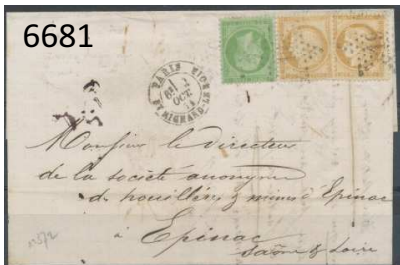 6681
PARIS
OCT.
Monsieur le Directeur
de la société anonyme
de houillères & mines d'Epinac
à Epinac
Saône & Loire